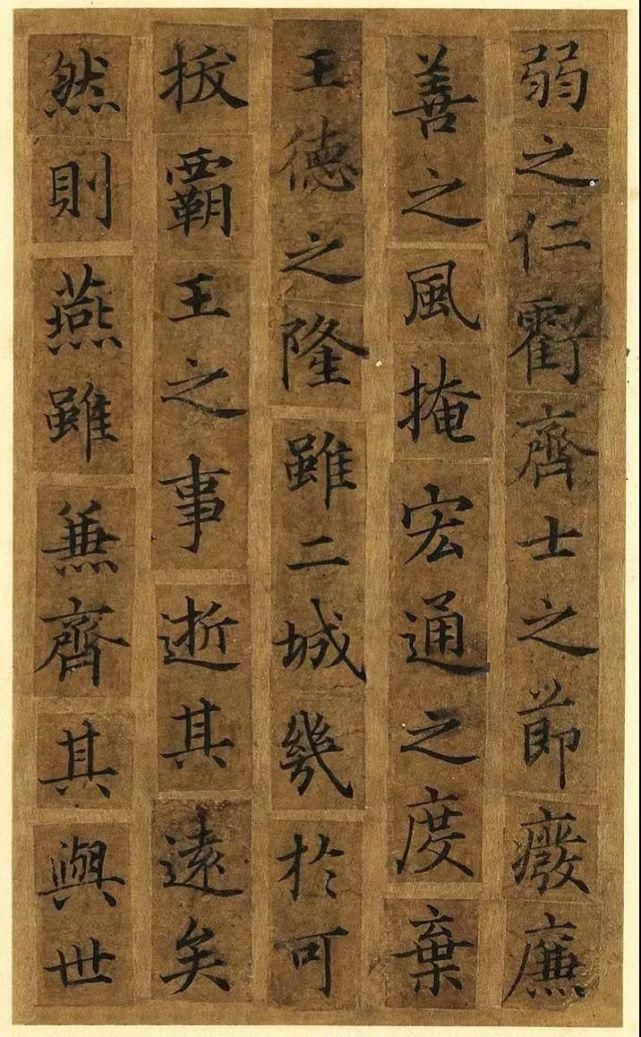 弱之仁虧齊士之節癈廉
善之風掩宏通之度棄
王德之隆雖二城幾扵可
拔覇王之事逝其遠矣
然則燕雖兼齊其與世